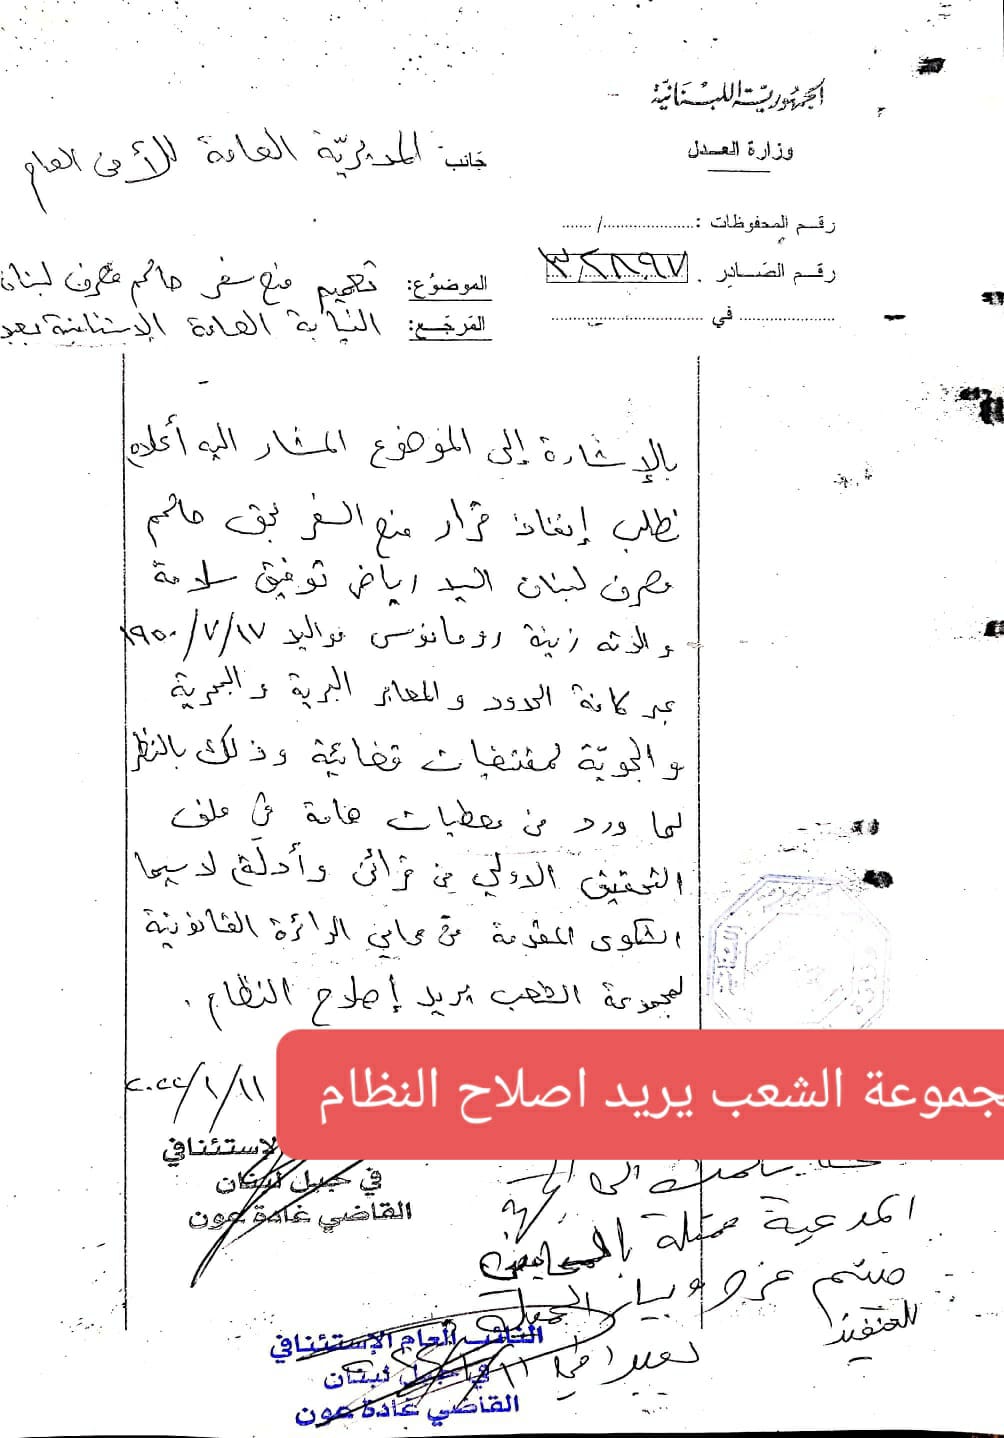 الجمهورية اللبنانية
وزارة العدل
جانب: المديرية العامة للأمن العام
رقم المحفوظات :...................../ .......
رقم الصادر . ٣٢٨٩٧
.................... في ................................
الموضوع: تعميم منع سفر حاكم مصرف لبنان
المرجع: النيابة العامة الإستئنافية بعبد
بالإشارة إلى الموضوع المشار اليه أعلاه
نطلب إنفاذ قرار منع السفر بحق حاكم
مصرف لبنان السيد رياض توفيق سلامة
والدته زينة رومانوس مواليد ١٩٥٠/٧/١٧
عبر كافة الحدود والمعابر البرية والبحرية
والجويّة لمقتضيات قضائية وذلك بالنظر
لما ورد من معطيات هامة في ملف
التحقيق الاولي من قرائن وأدلّة لا سيما
الشكوى المقدمة من محامي الدائرة القانونية
لمجموعة الشعب يريد إصلاح النظام .
٢٠٢٢/١/١١
جموعة الشعب يريد اصلاح النظام
الإستئنافي
في جبل لبنان
القاضي غادة عون
الى الجهة
المدعية ممثلة بالمحاميين
هيثم عزو وبيار الجميل
للتنفيذ
بعبدا في ١١/١/
النائب العام الإستئنافي
في جبل لبنان
القاضي غادة عون